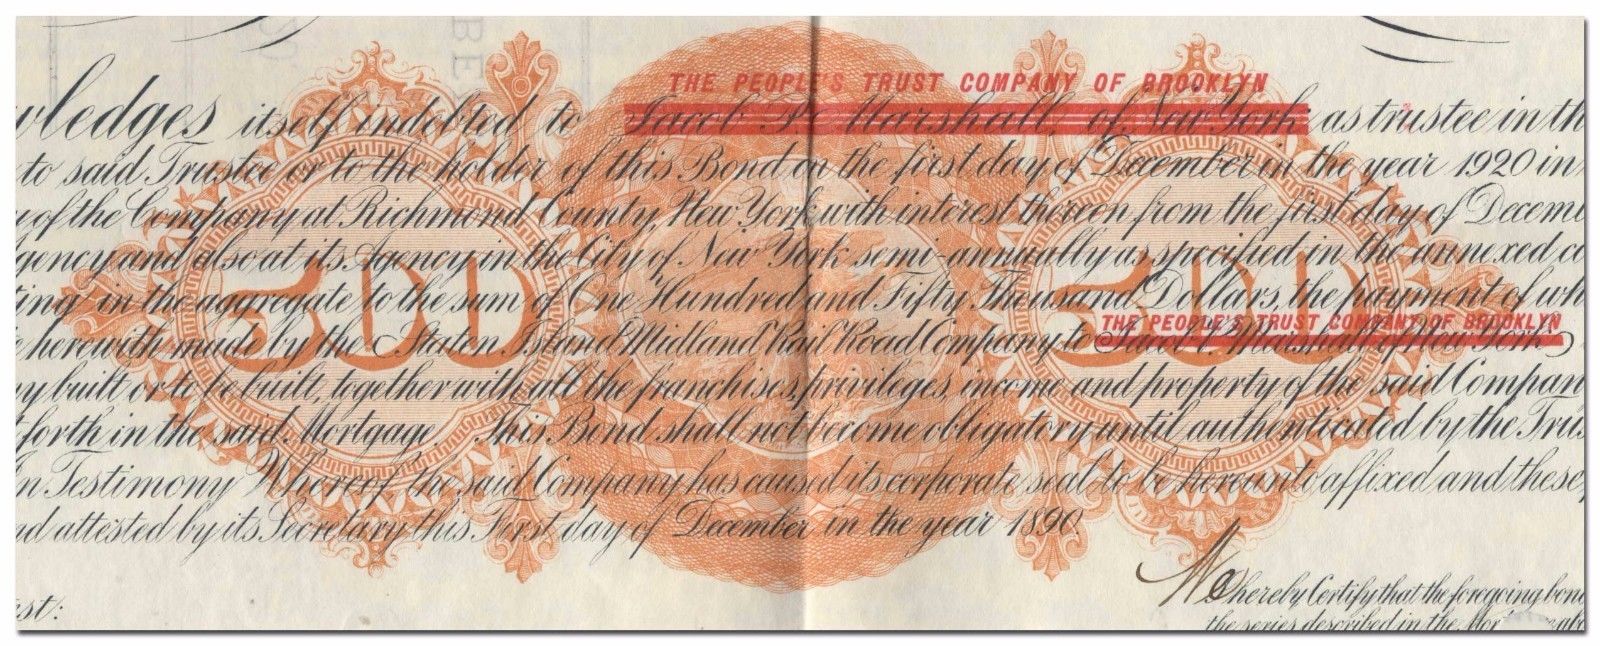 THE PEOPLE'S TRUST COMPANY OF BROOKLYN
wledges itself indebted to Jacob P. Marshall, of New York as trustee in th
to said Trustee or to the holder of this Bond on the first day of December in the year 1920 in
y of the Company at Richmond County, New York with interest thereon from the first day of Decemb
gency and also at its Agency in the City of New York semi-annually as specified in the annexed co
ting in the aggregate to the sum of One Hundred and Fifty Thousand Dollars, the payment of wh
THE PEOPLE'S TRUST COMPANY OF BROOKLYN
e herewith made by the Staten Island Midland Rail Road Company to Jacob P. Marshall of New York
ay built or to be built, together with all the franchises, privileges, income and property of the said Compan
t forth in the said Mortgage. This Bond shall not become obligatory until authenticated by the Trus
In Testimony Whereof the said Company has caused its corporate seal to be hereunto affixed and these
nd attested by its Secretary this First day of December in the year 1890
500 500
We hereby Certify that the foregoing bond
est:
the series described in the Mor abo
BE